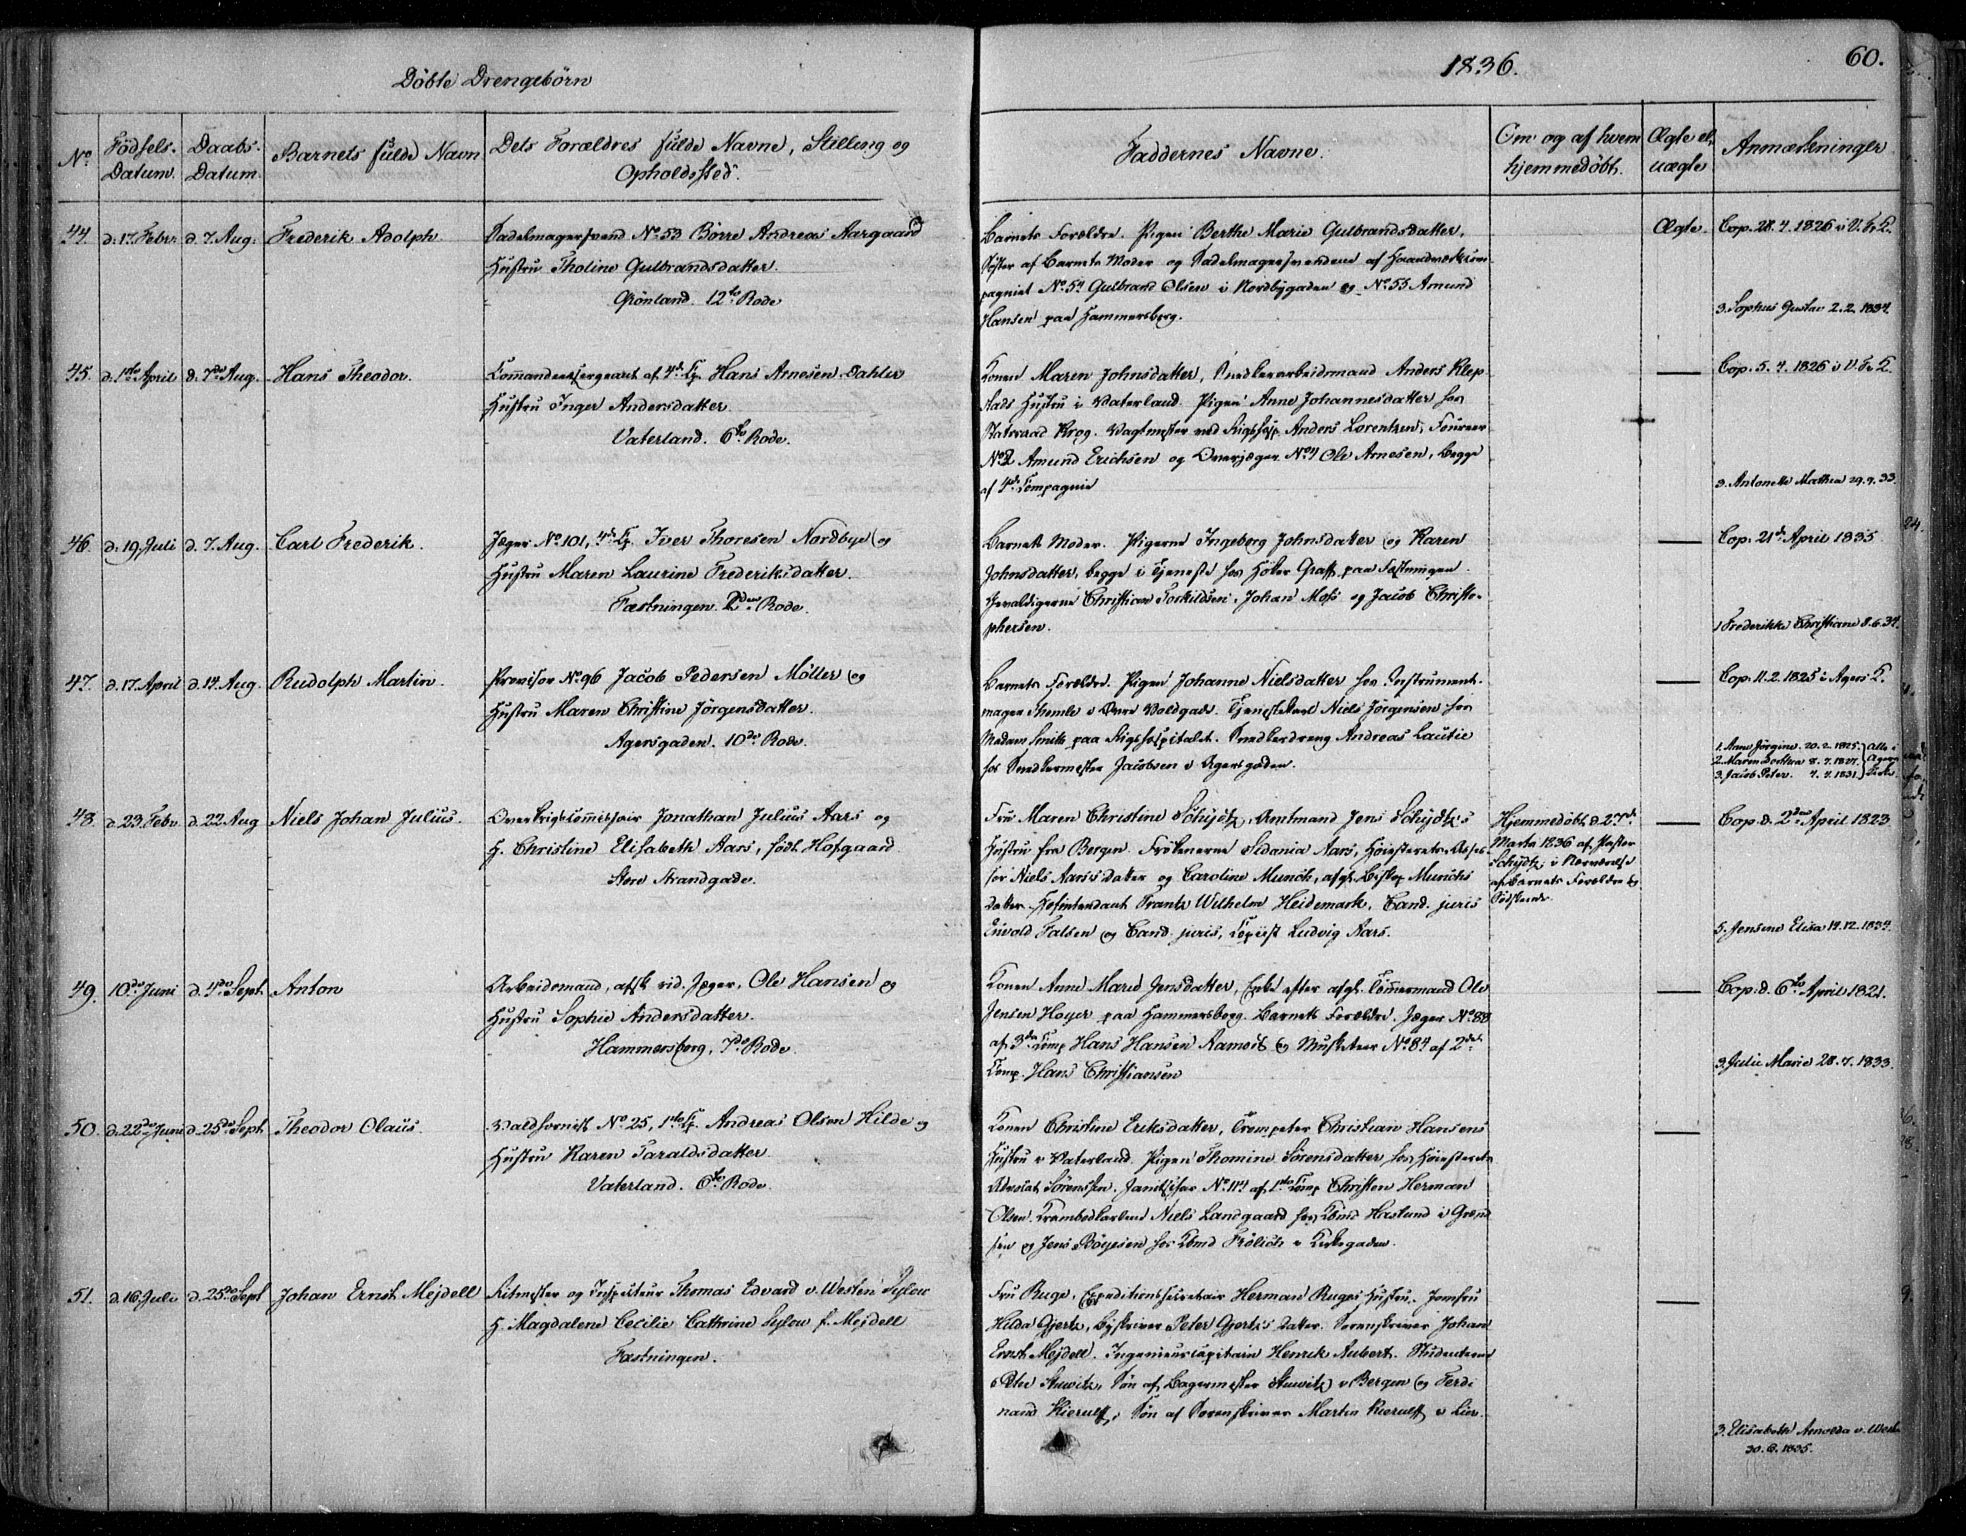 1836.
60.
Döbte Drengebörn
No
Födsels-Datum.
Daabs-Datum
Barnets fulde Navn
Dets Forældres fulde Navne, Stilling og Opholdssted.
Faddernes Navne.
Om og af hvem hjemmedöbt.
Ægte el. uægte
Anmærkninger
44. d. 17. Febr. d. 7. Aug. Frederik Adolph.
Sadelmagersvend No 53 Börre Andreas Aargaard
Hustru Tholine Gulbrandsdatter.
Grönland. 12te Rode
Barnets Forældre. Pigen Berthe Marie Gulbrandsdatter,
Söster af Barnets Moder og Sadelmagersvendene af Haandværkscom-
pagniet No 54 Gulbrand Olsen i Nordbygaden og No 55 Amund
Hansen paa Hammersborg.
Ægte.
Cop. 28. 7. 1826 i V. Fr. K.
3. Sophus Gustav 2. 2. 1834.
45. d. 1ste April d. 7de Aug. Hans Theodor.
Commandeersergeant af 4de Cp. Hans Arnesen Dahler
Hustru Inger Andersdatter.
Vaterland. 6te Rode.
Konen Maren Johnsdatter, Snedkerarbeidsmand Anders Klep-
stads Hustru i Vaterland. Pigen Anne Johannesdatter hos
Statsraad Krog. Vagtmester ved Rigshosp. Anders Lorentzen, Foureer
No 2 Amund Erichsen og Overjæger No 4 Ole Arnesen, begge
af 4de Compagnie
Cop. 5. 7. 1826 i V. Fr. K.
3. Antonette Mathea 29. 9. 33.
46. d. 19. Juli d. 7. Aug. Carl Frederik.
Jæger No 101, 4de Cp. Iver Thoresen Nordbye og
Hustru Maren Laurine Frederiksdatter.
Fæstningen. 2den Rode.
Barnets Moder. Pigerne Ingeborg Johnsdatter og Karen
Johnsdatter, begge i Tjeneste hos Höker Graff paa Fæstningen.
Gevaldigerne Christian Torkildsen, Johan Moss og Jacob Christo-
phersen.
Cop. 21de April 1835
1 Frederikke Christiane 8. 6. 34.
47. d. 17. April d. 14. Aug. Rudolph Martin.
Provisor No 96 Jacob Pedersen Möller og
Hustru Maren Christine Jörgensdatter.
Agersgaden. 10de Rode.
Barnets Forældre. Pigen Johanne Nielsdatter hos Instrument-
mager Themle i Övre Voldgade. Tjenestekarl Niels Jörgensen hos
Madam Smith paa Rigshospitalet. Snedkerdreng Andreas Lautie
hos Snedkermester Jacobsen i Agersgaden.
Cop. 11. 2. 1825 i Agers K.
1. Anne Jörgine. 20. 2. 1825.
2. Maren Dorthea 8. 7. 1827.
3. Jacob Peter. 4. 4. 1831.
Alle i Agers Kirke
48. d. 23. Febr. d. 22 Aug Niels Johan Julius.
Overkrigscommissair Jonathan Julius Aars og
H. Christine Elisabeth Aars, födt Hofgaard
Store Strandgade.
Fru Maren Christine Schydtz, Amtmand Jens Schydtz's
Hustru fra Bergen. Frökenerne Sedania Aars, Höiesterets-Asses-
sor Niels Aars's Datter og Caroline Munch, afgl. Biskop Munchs
Datter. Hofintendant Frantz Wilhelm Heidemark, Cand. juris
Envold Falsen og Cand. juris, Copiist Ludvig Aars.
Hjemmedöbt d. 27de
Marts 1836 af Pastor
Schydtz i Nærværelse
af Barnets Forældre og
Södskende.
Cop. d. 2den April 1823
5. Jensine Elisa 14. 12. 1834.
49. 10de Juni d. 4de Sept. Anton
Arbeidsmand, afsk. rid. Jæger, Ole Hansen og
Hustru Sophie Andersdatter.
Hammersborg, 7de Rode.
Konen Anne Marie Jensdatter, Enke efter afgl. Tömmermand Ole
Jensen Hoyer paa Hammersborg. Barnets Forældre. Jæger No 88
af 3die Comp Hans Hansen Aamodt og Musketeer No 84 af 2det
Comp. Hans Christiansen
Cop. d. 6te April 1821.
3. Julie Marie 28. 7. 1833.
50. d. 22de Juni d. 25de Sept Theodor Olaus
Valdhornist No 25, 1ste Cp. Andreas Olsen Hilde og
Hustru Karen Taraldsdatter.
Vaterland. 6te Rode.
Konen Christine Eriksdatter, Trompeter Christian Hansens
Hustru i Vaterland. Pigen Thomine Sörensdatter hos Höiesterets-
Advocat Sörenssen. Janitschar No 114 af 1ste Comp Christen Herman
Olsen. Krambodkarlene Niels Landgaard hos Kbmd Haslund i Grænd-
sen og Jens Böyesen hos Kbmd Frölich i Kirkegaden.
51. d. 16. Juli d. 25de Sept Johan Ernst Mejdell
Ritmester og Inspecteur Thomas Edvard v. Westen Sylow
H. Magdalene Cecilie Cathrine Sylow f. Mejdell
Fæstningen.
Fru Ruge, Expeditionssecretair Herman Ruges Hustru. Jomfru
Hilda Gjertz, Byskriver Peter Gjertz's Datter. Sorenskriver Johan
Ernst Mejdell. Ingenieurcapitain Henrik Aubert. Studenterne
Peter Stuwitz, Sön af Bagermester Stuwitz i Bergen og Ferdi-
nand Kierulff, Sön af Sorenskriver Martin Kierulff i Lier.
3. Elisabeth Arnolda v. Westen
30. 6. 1835.